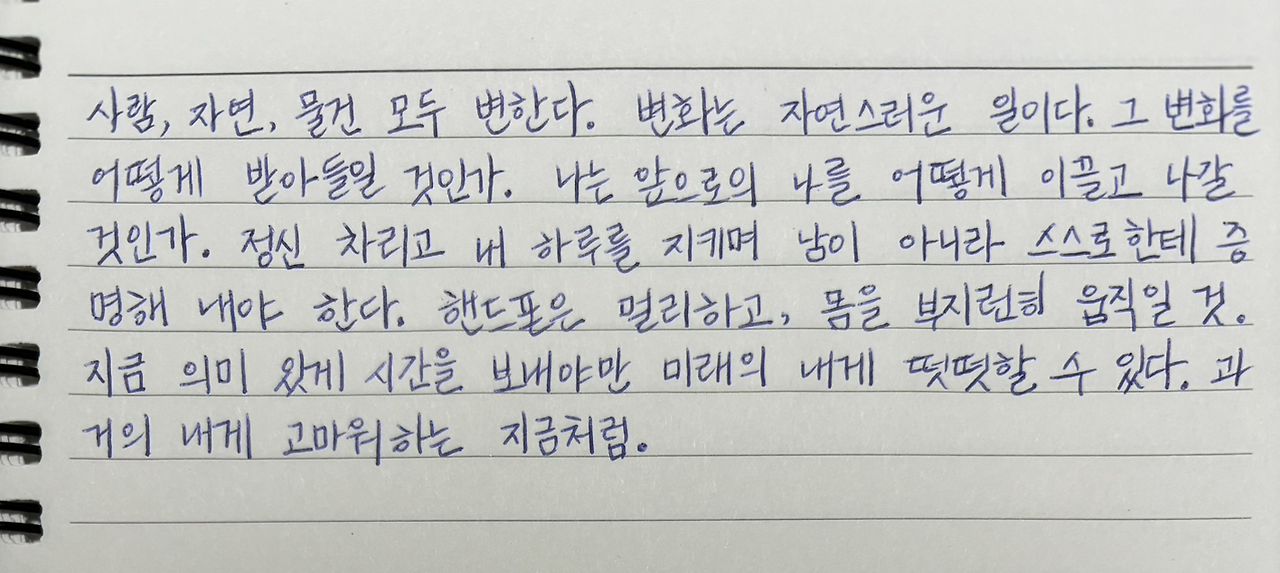 사람, 자연, 물건 모두 변한다. 변화는 자연스러운 일이다. 그 변화를
어떻게 받아들일 것인가. 나는 앞으로의 나를 어떻게 이끌고 나갈
것인가. 정신 차리고 내 하루를 지키며 남이 아니라 스스로한테 증
명해 내야 한다. 핸드폰은 멀리하고, 몸을 부지런히 움직일 것.
지금 의미 있게 시간을 보내야만 미래의 내게 떳떳할 수 있다. 과
거의 내게 고마워하는 지금처럼.